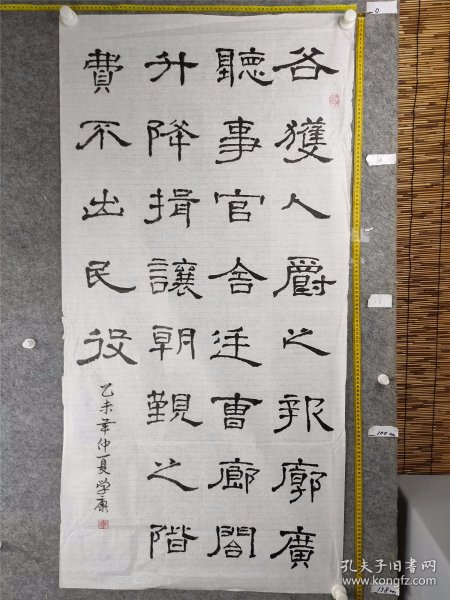 各獲人爵之報廓廣
聽事官舍廷曹廊閣
升降揖讓朝覲之階
費不出民役
乙未年仲夏学康
孔夫子旧书网
kongfz.com
0
100cm